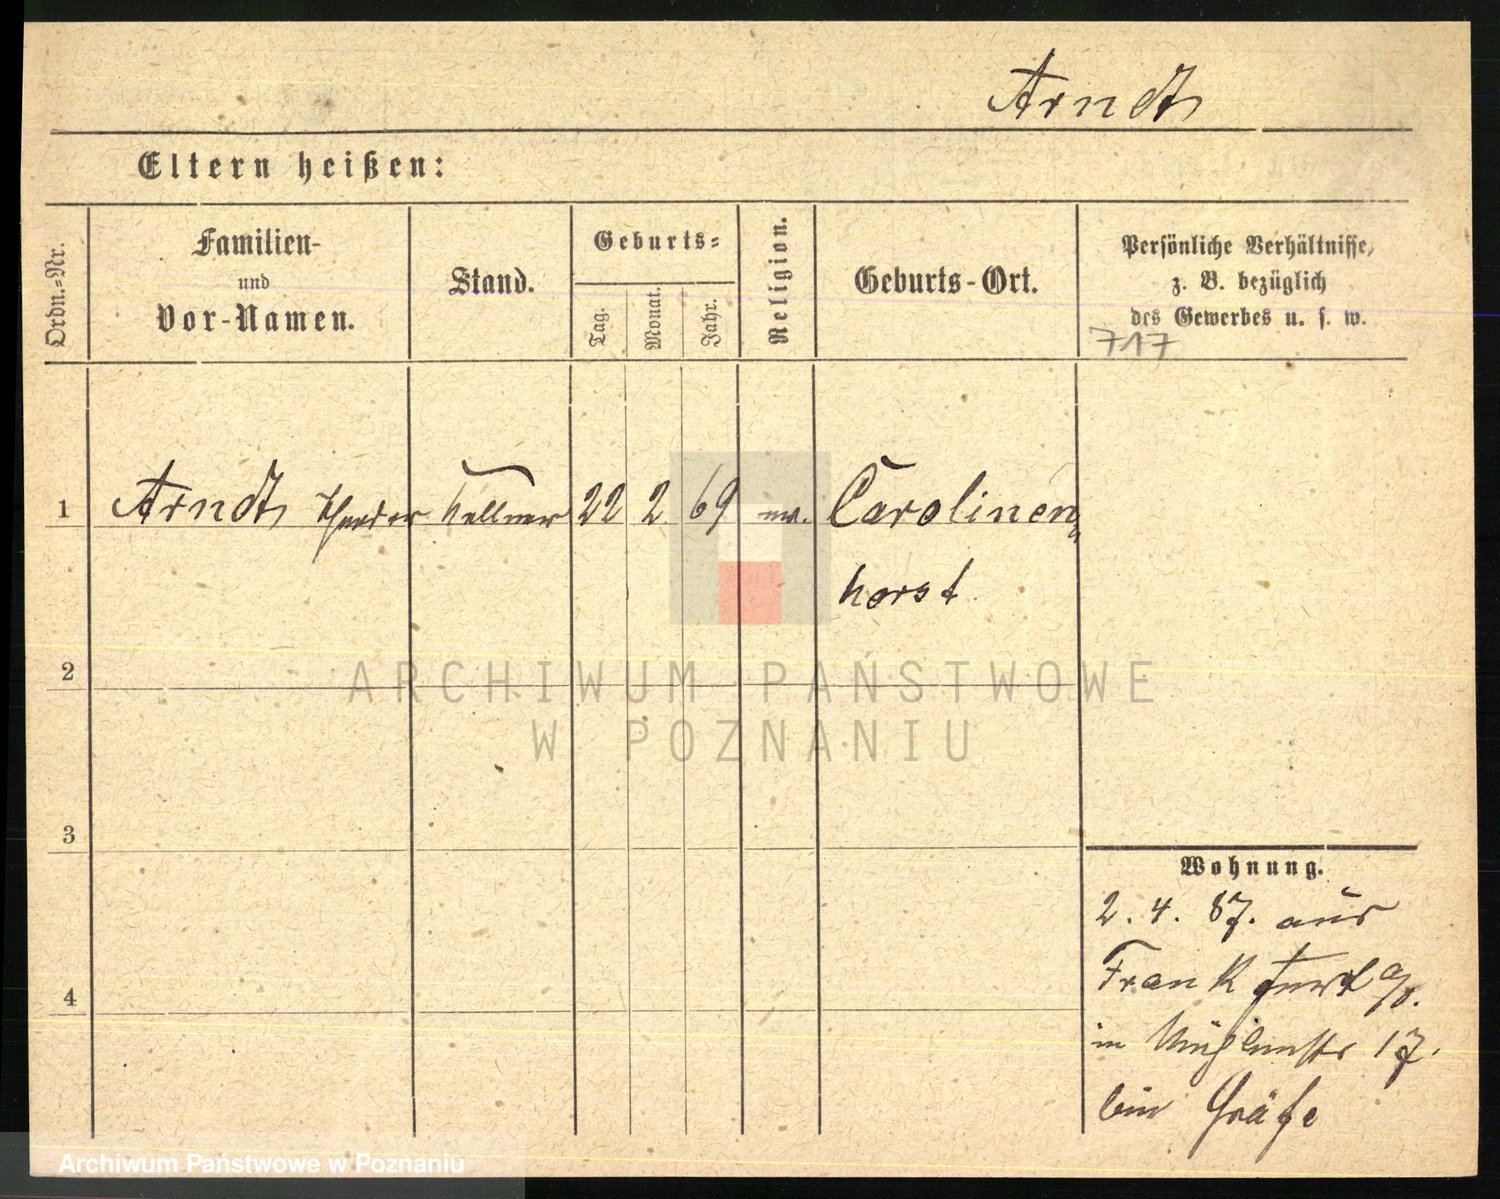 Arndt
Eltern heißen:
Ordn.-Nr.
Familien-
und
Vor-Namen.
Stand.
Geburts-
Tag.
Monat.
Jahr.
Religion.
Geburts-Ort.
Persönliche Verhältnisse,
z. B. bezüglich
des Gewerbes u. s. w.
717
1 Arndt Theodor Kellner 22 2 69 ev. Carolinen
horst
2
3
4
Wohnung.
2. 4. 87. aus
Frankfurt a/O.
in Mühlenstr 17.
bei Gräfe
ARCHIWUM PAŃSTWOWE
W POZNANIU
Archiwum Państwowe w Poznaniu